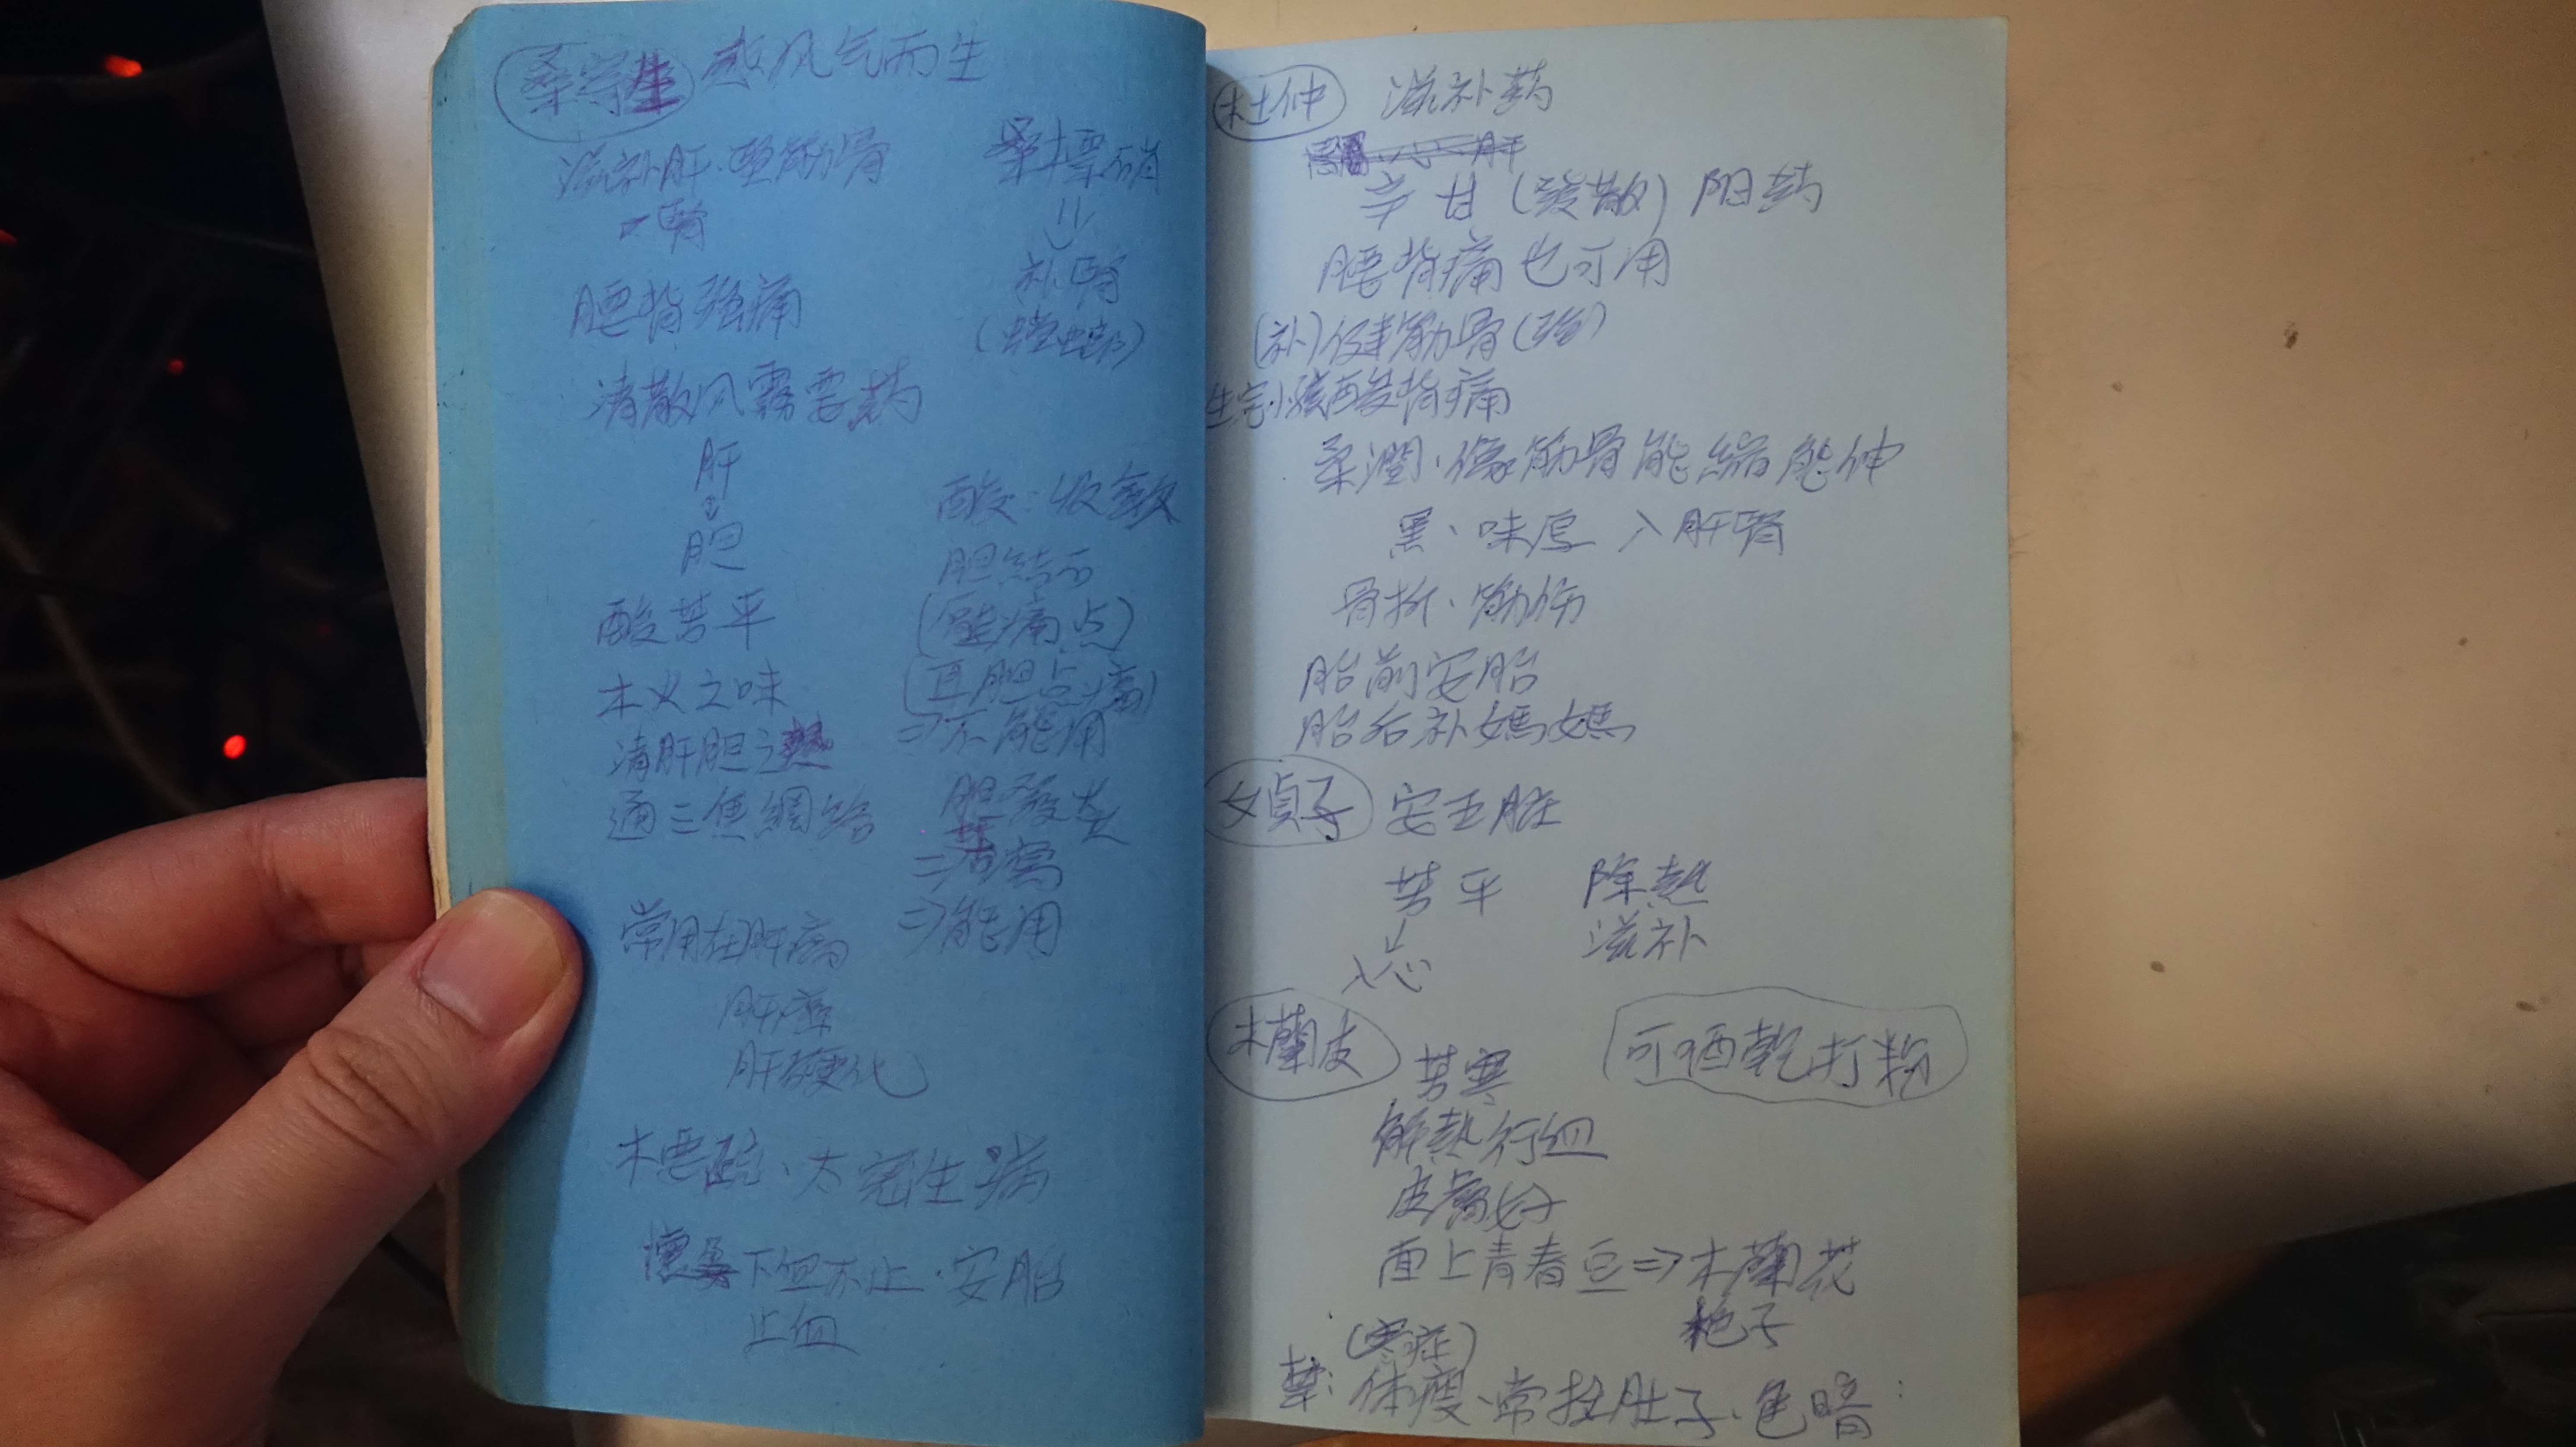 桑寄生 感风气而生
滋补肝·坚筋骨
腎
腰背强痛
清散风雾要药
肝
↕
胆
酸苦平
木火之味
清肝胆之熱
通三焦網絡
常用在肝病
肝癌
肝硬化
木要疏·太完生病
懷孕下血不止·安胎
止血
桑螵硝
补腎
(螳螂)
酸:收斂
胆结石
(壓痛点)
(耳胆点痛)
⇒不能用
胆發炎
⇒苦寒
⇒能用
杜仲 滋补药
辛甘(發散)阳药
腰背痛也可用
(补)健筋骨(强)
生完小孩酸背痛
柔潤·像筋骨能縮能伸
黑、味厚 入肝腎
骨折·筋伤
胎前安胎
胎后补媽媽
女貞子 安五脏
苦平 除熱
↓ 滋补
入心
木蘭皮 苦寒 可晒乾打粉
解熱行血
皮膚好
面上青春豆⇒木蘭花
栀子
(寒症)
禁:体瘦·常拉肚子·色暗